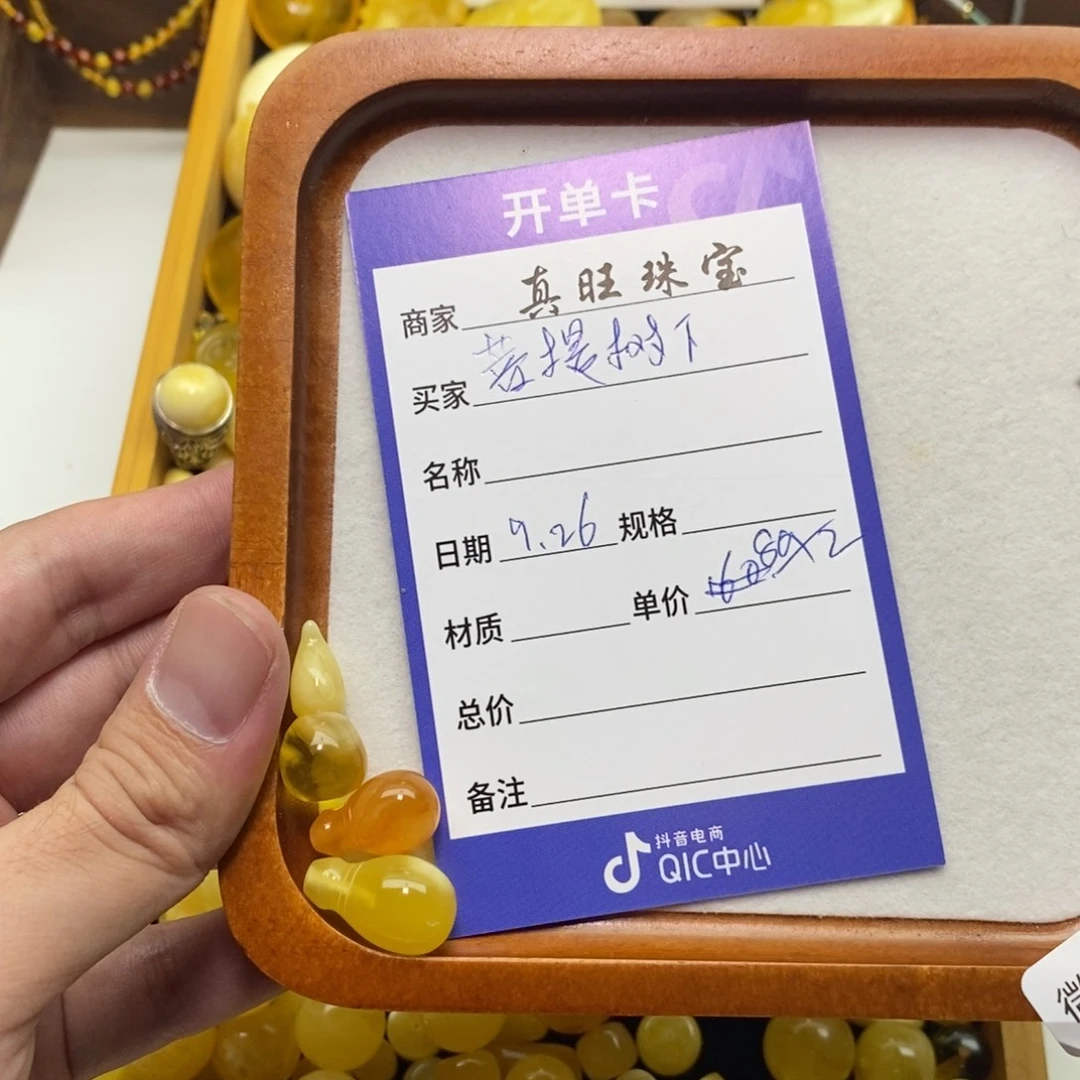 开单卡
商家 真旺珠宝
买家 菩提树下
名称
日期 9.26 规格
材质 单价
总价
备注
抖音电商
QIC中心
微